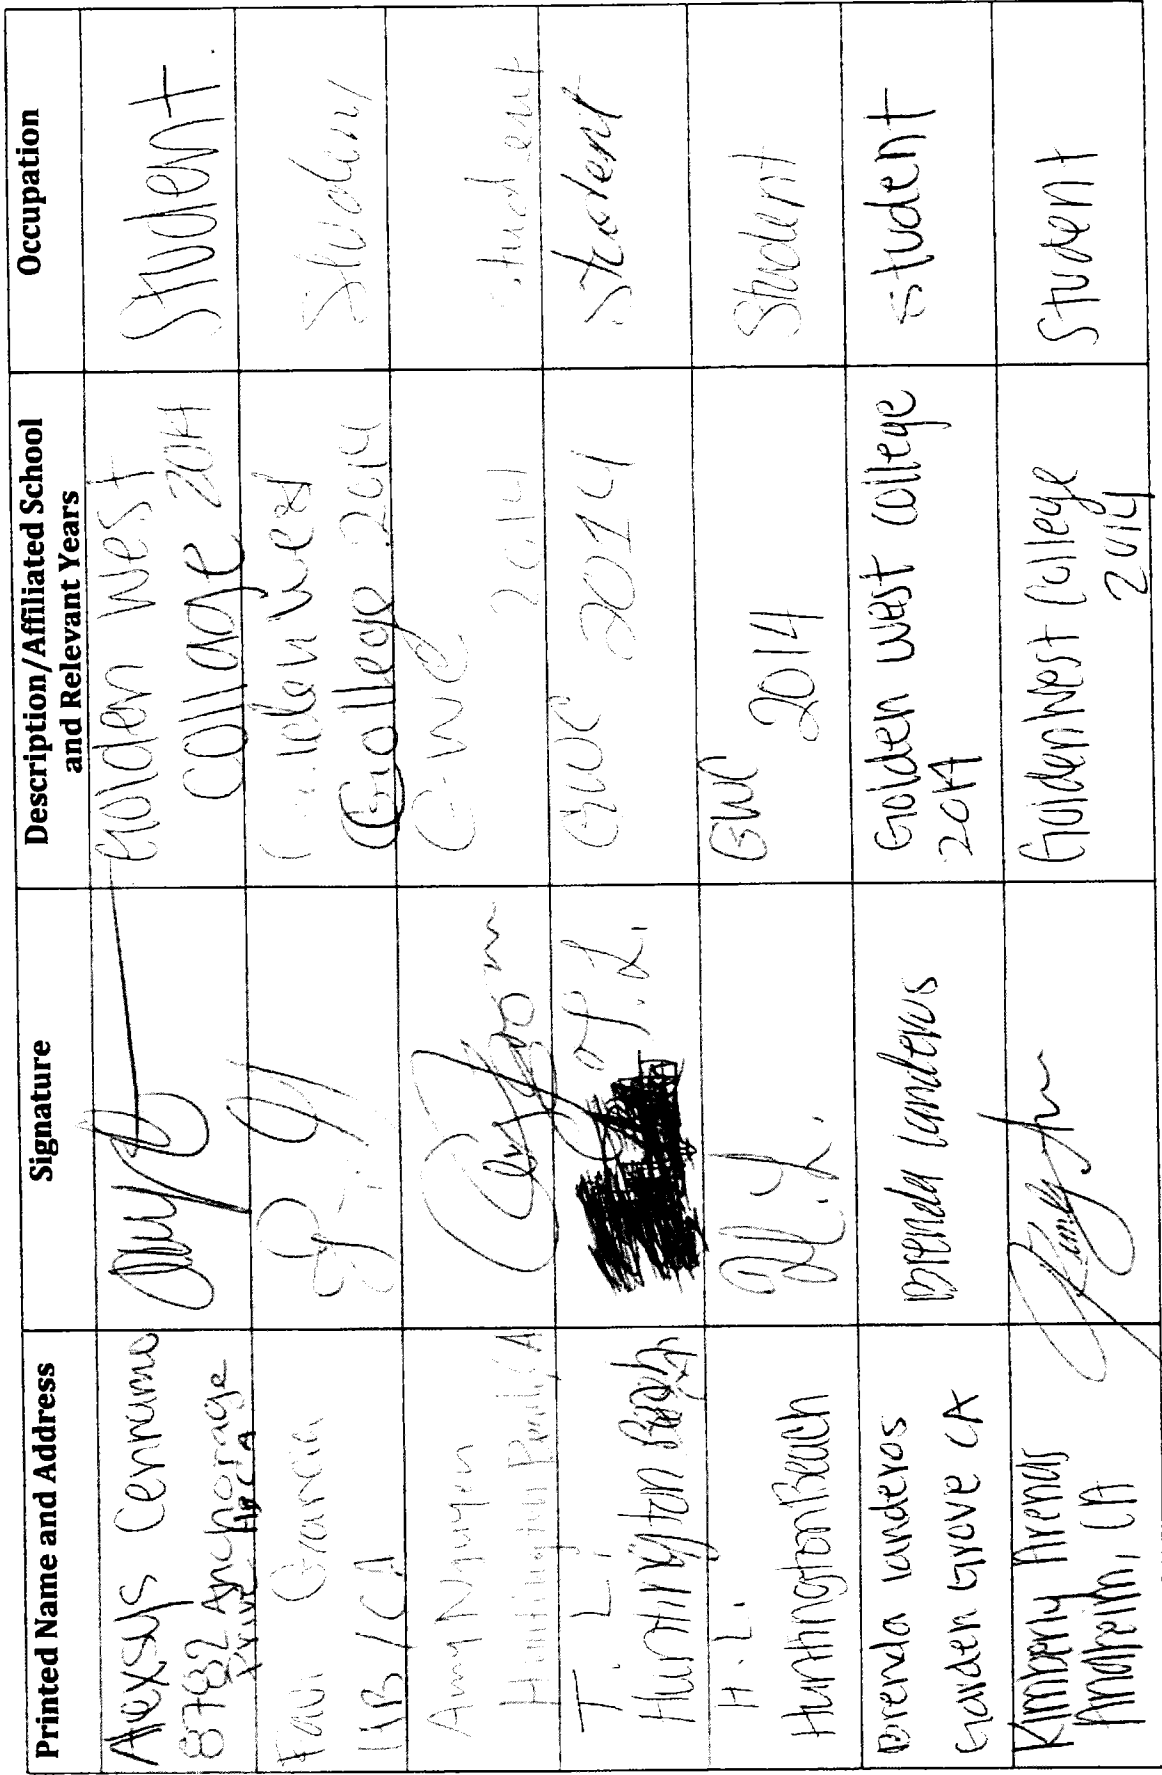 Printed Name and Address
Signature
Description/Affiliated School
and Relevant Years
Occupation
Alexsys Cennamo
8782 Anchorage
Drive HB CA
Golden West
Collage 2014
Student.
Favi Garcia
HB / CA
Golden West
College 2014
Student
Amy Nguyen
Huntington Beach, CA
GWC
2014
student
T. L.
Huntington Beach
T. L.
GWC 2014
Student
H. L.
Huntington Beach
H. L.
GWC
2014
Student
Brenda landeros
Garden Grove CA
Brenda landeros
Golden west college
2014
student
Kimberly Arenas
Anaheim, CA
Golden West College
2014
Student